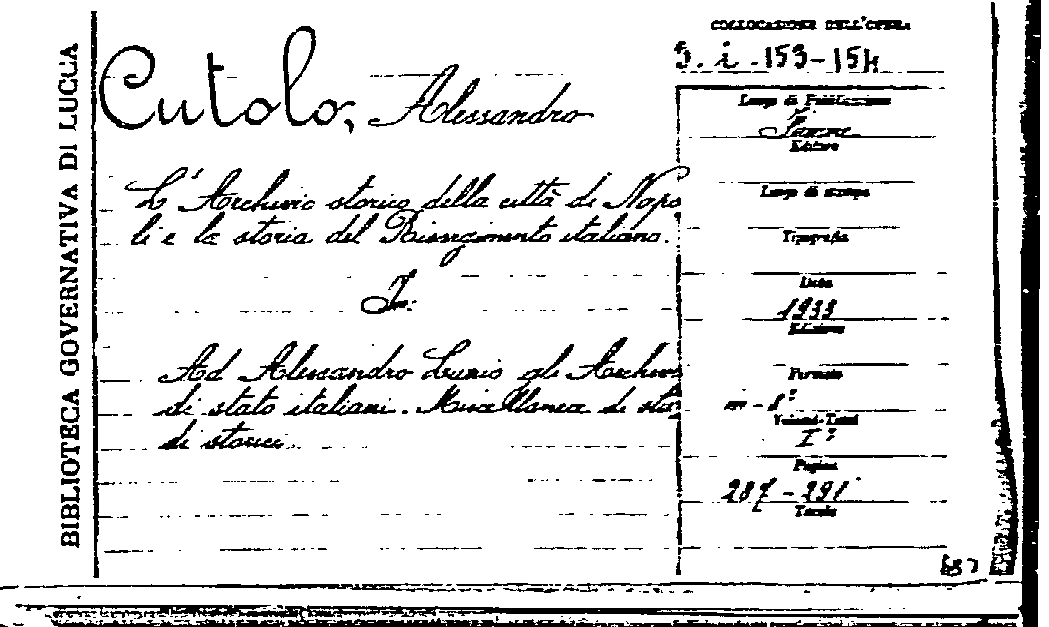 BIBLIOTECA GOVERNATIVA DI LUCCA
COLLOCAZIONE DELL'OPERA
5. i. 153-154
Cutolo, Alessandro
L'Archivio storico della città di Napo
li e la storia del Risorgimento italiano.
In:
Ad Alessandro Luzio gli Archivi
di stato italiani. Miscellanea di stu
di storici.
Luogo di Pubblicazione
Firenze
Editore
Luogo di stampa
Tipografia
Data
1933
Edizione
Formato
in-8°
Volumi-Tomi
I°
Pagine
287-291
Tavole